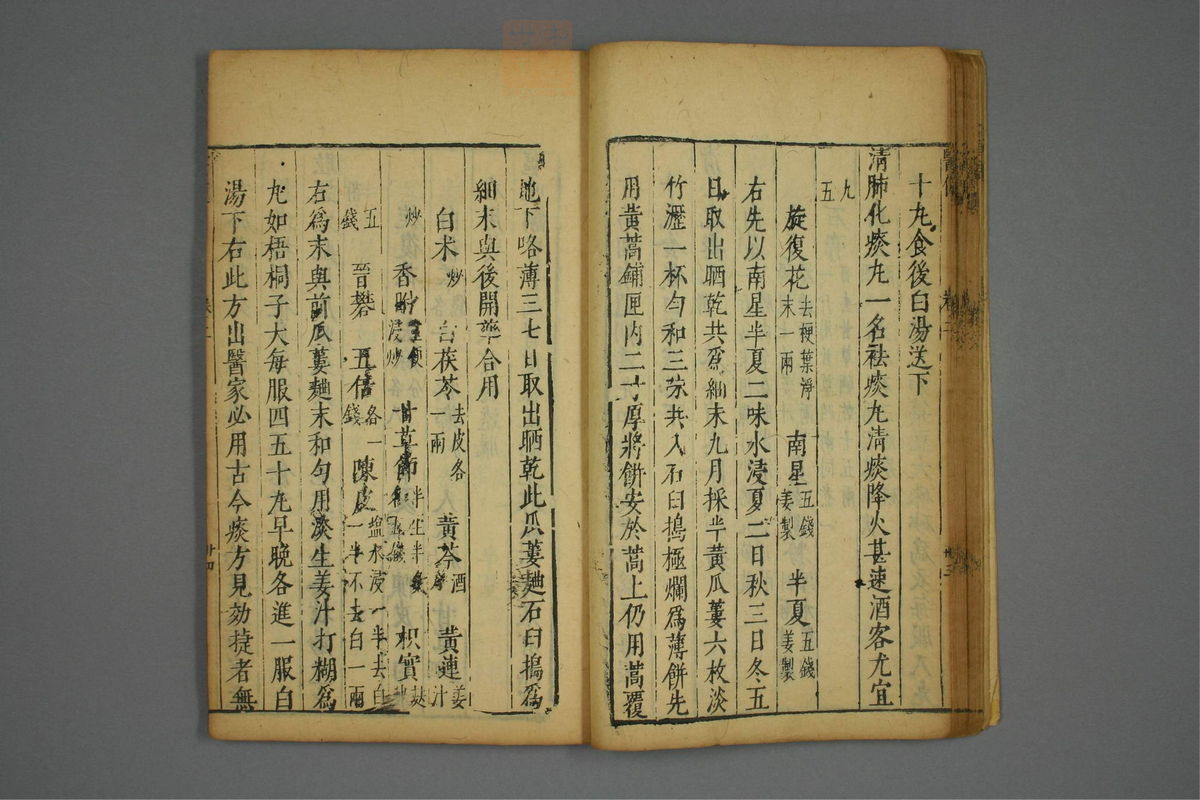 十九食後白湯送下
清肺化痰丸一名祛痰丸清痰降火甚速酒客尤宜
九五
旋復花去梗葉淨末一兩 南星五錢姜製 半夏五錢姜製
右先以南星半夏二味水浸夏二日秋三日冬五
日取出晒乾共爲細末九月採半黃瓜蔞六枚淡
竹瀝一杯勻和三茶共入石臼搗極爛爲薄餅先
用黃蒿鋪匣內二寸厚將餅安於蒿上仍用蒿覆
地下咯薄三七日取出晒乾此瓜蔞麯石臼搗爲
細末與後開藥合用
白术炒 白茯苓去皮各一兩 黃芩酒 黃連姜汁
炒 香附浸炒 甘草節半生半炙五錢 枳實麸
五錢 晉礬 五倍各一錢 陳皮塩水浸一半去白一半不去白一兩
右爲末與前瓜蔞麯末和勻用淡生姜汁打糊爲
丸如梧桐子大每服四五十丸早晚各進一服白
湯下右此方出醫家必用古今痰方見効捷者無